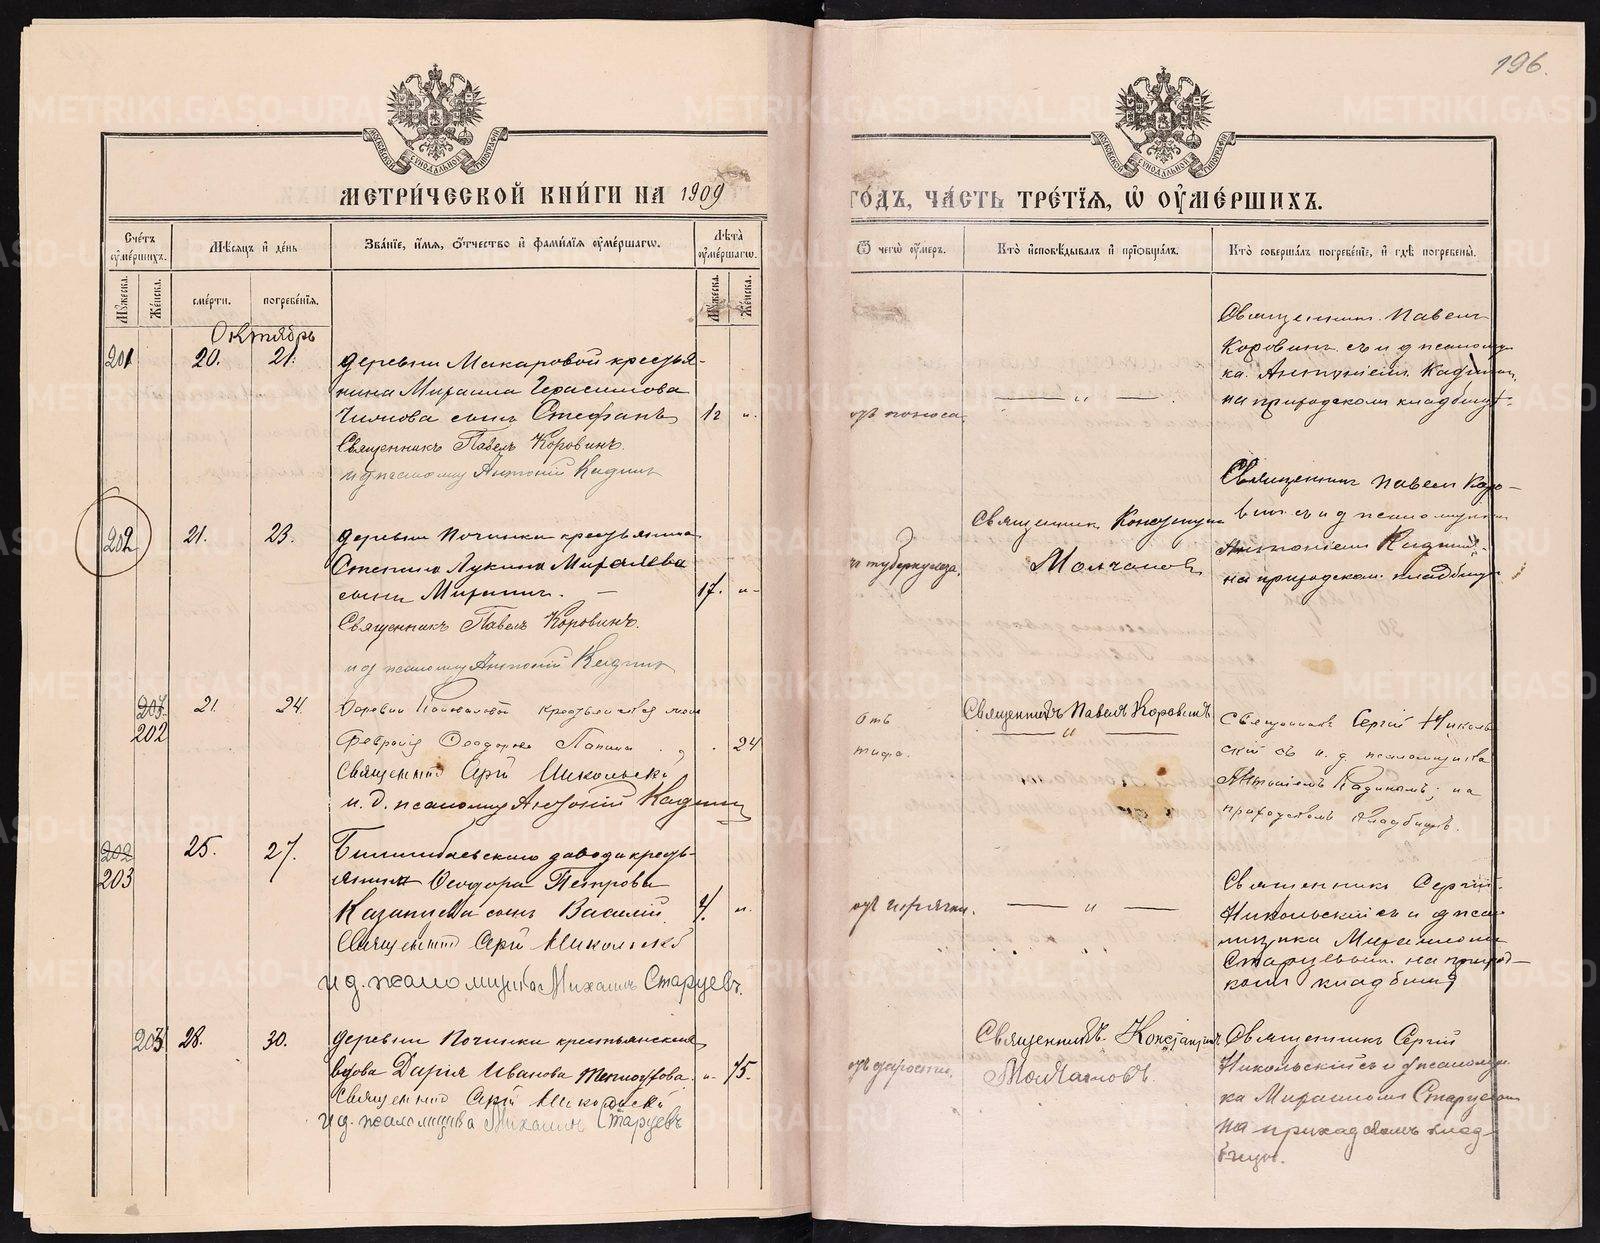 196.
МОСКОВСКОЙ СѴНОДАЛЬНОЙ ТИПОГРАФІИ
МЕТРИ́ЧЕСКОЙ КНИ́ГИ НА 1909
ГО́ДЪ, ЧА́СТЬ ТРЕ́ТІѦ, Ѡ ОУ҆МЕ́РШИХЪ.
Сче́тъ оу҆ме́ршихъ.
Мѣ́сѧцъ и҆ де́нь
Зва́нїе, и҆́мѧ, ѻ҆́тчество и҆ фами́лїѧ оу҆ме́ршагѡ.
Лѣ́та оу҆ме́ршагѡ.
Ѿ чегѡ̀ оу҆́меръ.
Кто̀ и҆сповѣ́дывалъ и҆ прїѡбща́лъ.
Кто̀ соверша́лъ погребе́нїе, и҆ гдѣ̀ погребены̀.
Мꙋ́жеска. Же́нска.
сме́рти. погребе́нїѧ.
Мꙋ́жеска. Же́нска.
Октябрь
201 20. 21. деревни Макаровой крестья-
нина Михаила Герасимова
сынъ Стефанъ 1г „
Священникъ Павелъ Коровинъ.
и д псаломщ Антоній Кадинъ
отъ поноса.
— „ —
Священникъ Павелъ
Коровинъ съ и д псаломщи
ка Антоніемъ Кадинымъ
на приходскомъ кладбищѣ
202 21. 23. деревни Починки крестьянина
Степана Лукина Михалева
сынъ Михаилъ. — 17. „
Священникъ Павелъ Коровинъ.
и д псаломщ Антоній Кадинъ
туберкулеза.
Священникъ
Молчановъ
Священникъ Павелъ Коро-
винъ съ и д псаломщикомъ
Антоніемъ Кадинымъ
на приходскомъ кладбищѣ
207
202 21 24 Деревни крестьянская
Февронія Ѳеодорова 24
Священникъ Сергій Никольскій
и. д. псаломщ Антоній Кадинъ
Отъ
тифа.
Священникъ Павелъ Коровинъ.
— „ —
Священникъ Сергій Николь
скій съ и. д. псаломщика
Антоніемъ Кадинымъ; на
приходскомъ кладбищѣ.
202
203 25. 27. Билимбаевскаго завода кресть-
янина Ѳеодора Петрова
Казанцева сынъ Василій 4. „
Священникъ Сергій Никольскій
и д. псаломщика Михаилъ Старцевъ.
отъ горячки.
— „ —
Священникъ Сергій
Никольскій съ и д псал
омщика Михаиломъ
Старцевымъ на приход-
комъ кладбищѣ
203 28. 30. деревни Починки крестьянская
вдова Дарія Иванова Теплоухова. „ 75.
Священникъ Сергій Никольскій
и д. псаломщика Михаилъ Старцевъ
отъ старости.
Священникъ Константинъ
Молчановъ.
Священникъ Сергій
Никольскій съ и д псаломщи
ка Михаиломъ Старцевым
на приходскомъ клад-
бищѣ.
METRIKI.GASO-URAL.RU